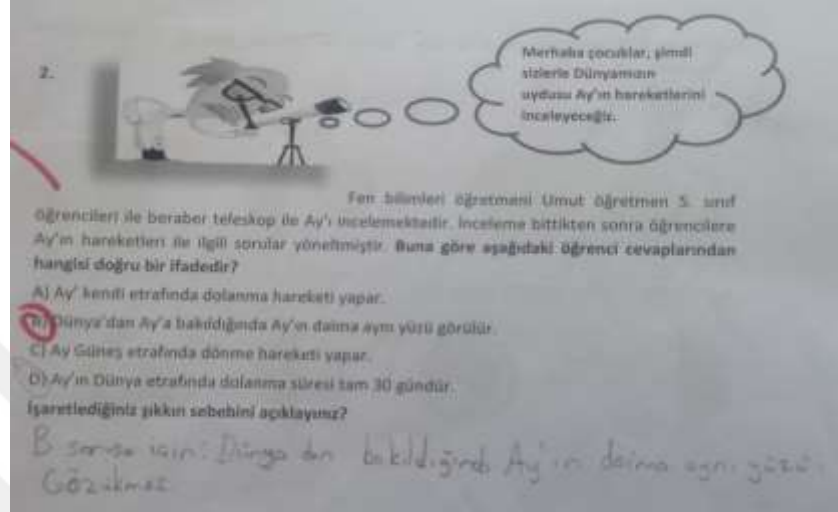 2.
Merhaba çocuklar, şimdi
sizlerle Dünyamızın
uydusu Ay'ın hareketlerini
inceleyeceğiz.
Fen bilimleri öğretmeni Umut öğretmen 5. sınıf
öğrencileri ile beraber teleskop ile Ay'ı incelemektedir. İnceleme bittikten sonra öğrencilere
Ay'ın hareketleri ile ilgili sorular yöneltmiştir. Buna göre aşağıdaki öğrenci cevaplarından
hangisi doğru bir ifadedir?
A) Ay' kendi etrafında dolanma hareketi yapar.
B) Dünya'dan Ay'a bakıldığında Ay'ın daima aynı yüzü görülür.
C) Ay Güneş etrafında dönme hareketi yapar.
D) Ay'ın Dünya etrafında dolanma süresi tam 30 gündür.
İşaretlediğiniz şıkkın sebebini açıklayınız?
B için: Dünya dan bakıldığında Ay'ın daima aynı yüzü
Gözükmez